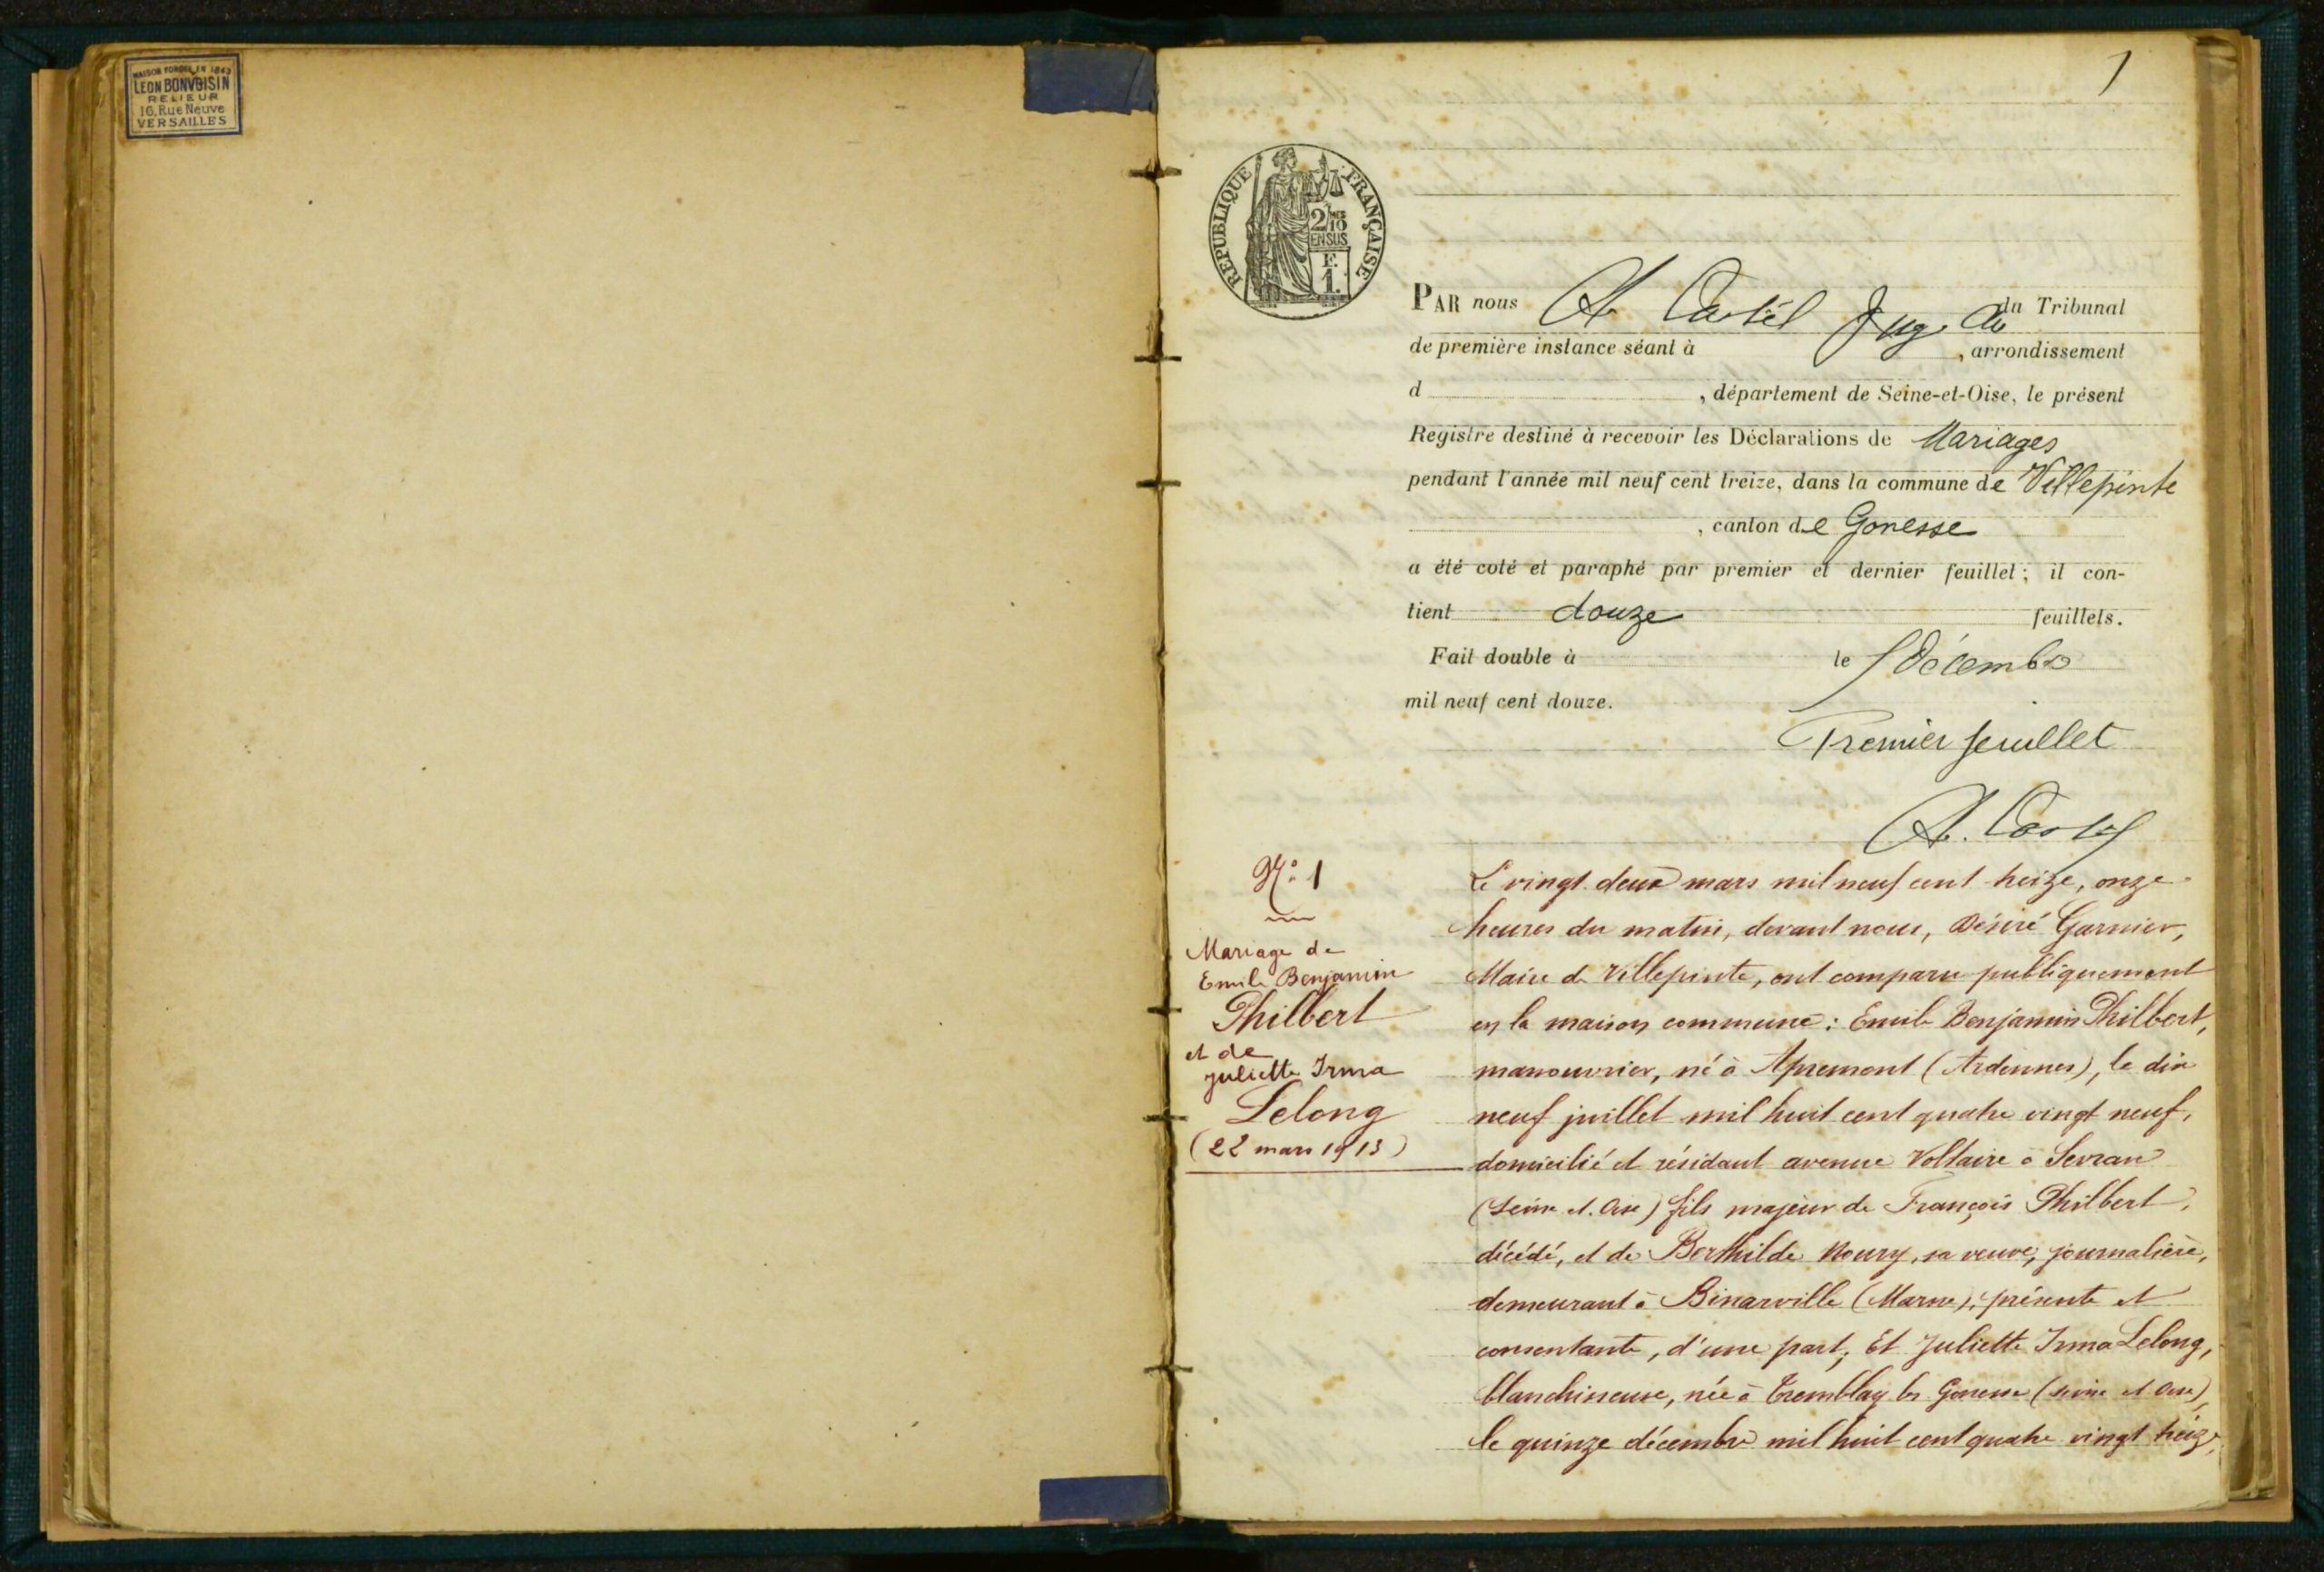 MAISON FONDÉE EN 1843
LÉON BONVOISIN
RELIEUR
16, Rue Neuve
VERSAILLES
1
RÉPUBLIQUE FRANÇAISE
2/10 MES
EN SUS
F.
1.
PAR nous A. Castel Juge du Tribunal
de première instance séant à , arrondissement
d , département de Seine-et-Oise, le présent
Registre destiné à recevoir les Déclarations de Mariages
pendant l'année mil neuf cent treize, dans la commune de Villepinte
, canton de Gonesse
a été coté et paraphé par premier et dernier feuillet; il con-
tient douze feuillets.
Fait double à le décembre
mil neuf cent douze.
Premier feuillet
A. Castel
N° 1
Mariage de
Emile Benjamin
Philbert
et de
Juliette Irma
Lelong
(22 mars 1913)
Le vingt deux mars mil neuf cent treize, onze
heures du matin, devant nous, Désiré Garnier,
Maire de Villepinte, ont comparu publiquement
en la maison commune : Emile Benjamin Philbert,
manouvrier, né à Apremont (Ardennes), le dix
neuf juillet mil huit cent quatre vingt neuf,
domicilié et résidant avenue Voltaire à Sevran
(Seine et Oise) fils majeur de François Philbert,
décédé, et de Berthilde Noury, sa veuve, journalière,
demeurant à Binarville (Marne), présente et
consentante, d'une part; Et Juliette Irma Lelong,
blanchisseuse, née à Tremblay les Gonesse (Seine et Oise),
le quinze décembre mil huit cent quatre vingt treize,